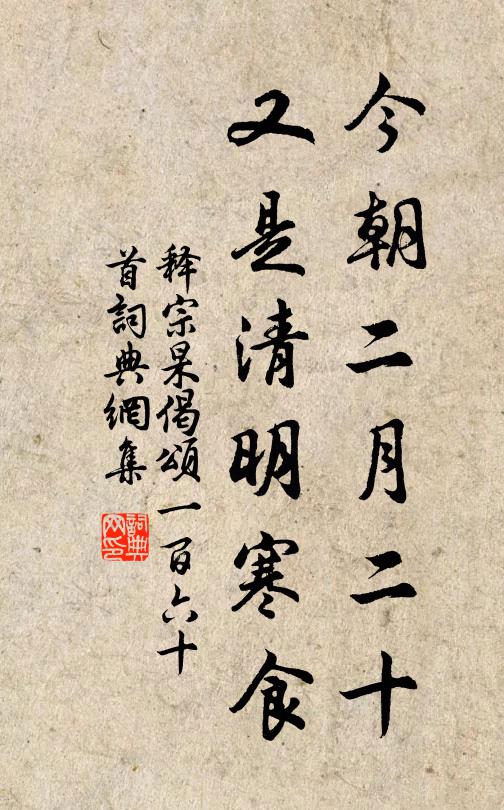 今朝二月二十
又是清明寒食
释宗杲偈頌一百六十
首詞典網集
詞典
网印